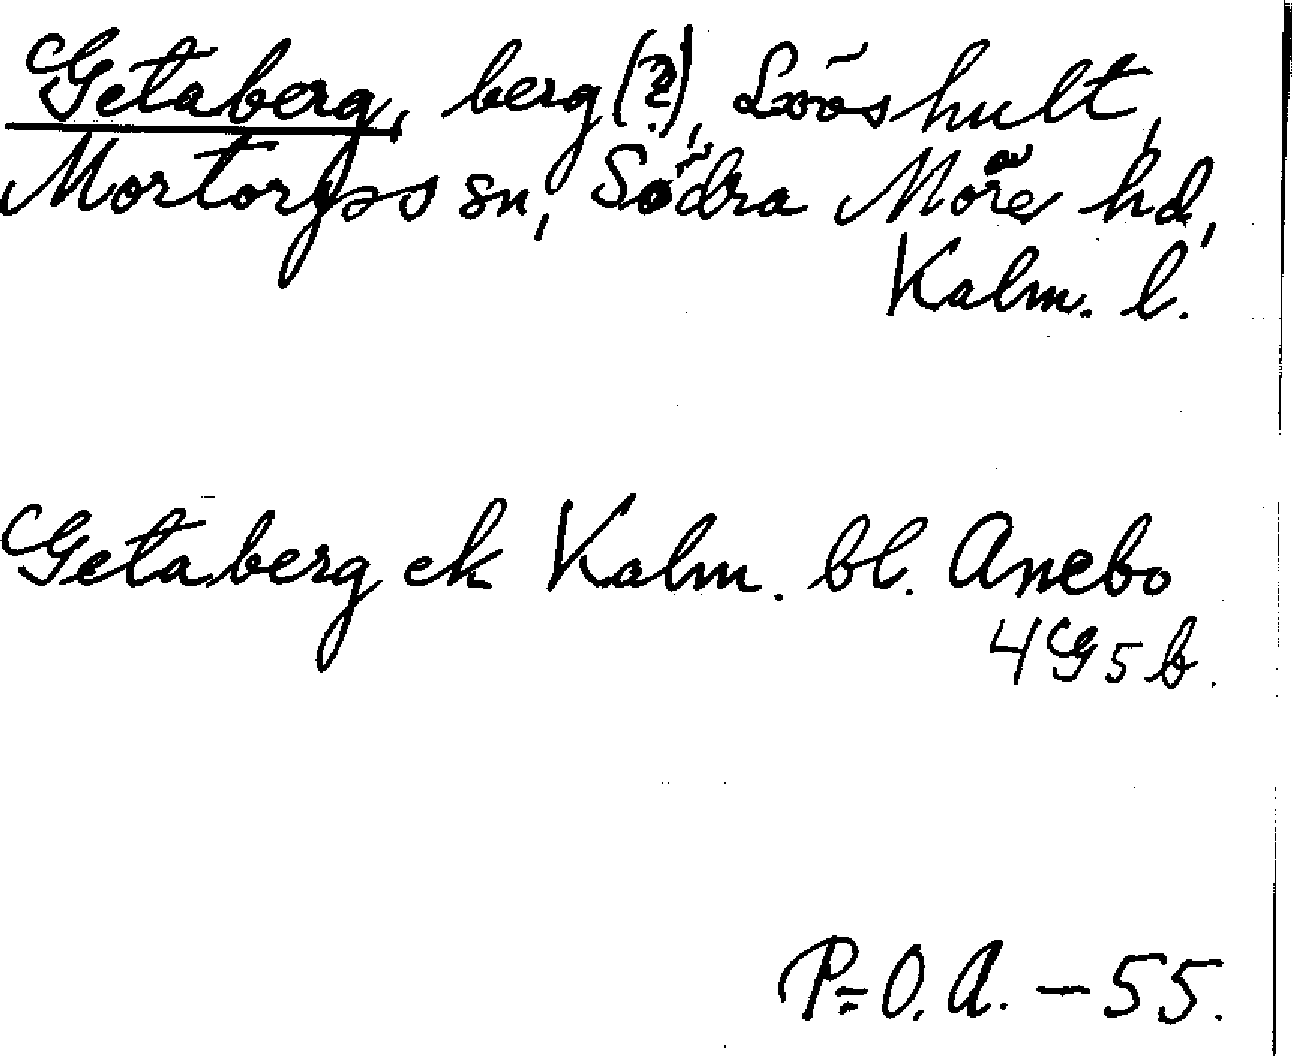 Getaberg, berg (?), Lööshult,
Mortorps sn, Södra Möre hd,
Kalm. l.
Getaberg ek Kalm. bl. Anebo
4G5b.
P=O.A. - 55.